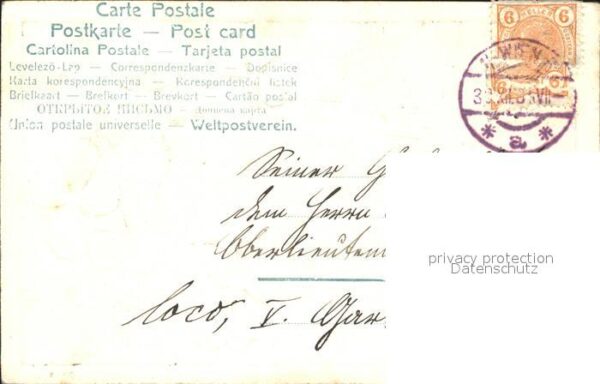 Carte Postale
Postkarte — Post card
Cartolina Postale — Tarjeta postal
Levelező-Lap — Correspondenzkarte — Dopisnice
Karta korespondencyjna — Korespondenční lístek
Briefkaart — Brefkort — Brevkort — Cartão postal
ОТКРЫТОЕ ПИСЬМО — Дописна карта
Union postale universelle — Weltpostverein.
6 6
WIEN
* a *
Seiner
dem Herrn
Oberlieuten
loco, V. Gar
privacy protection
Datenschutz